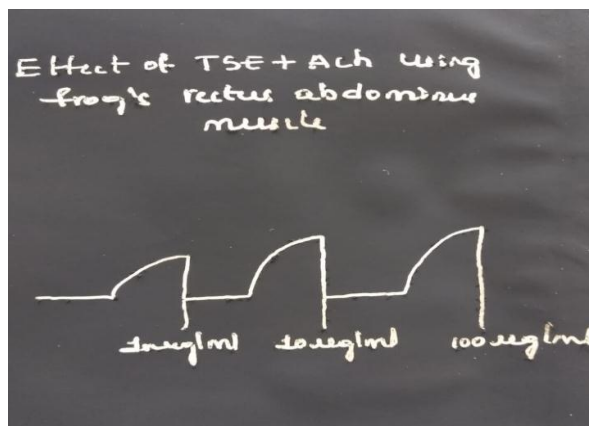 Effect of TSE + Ach using
frog's rectus abdominus
muscle
10 ug/ml 100 ug/ml